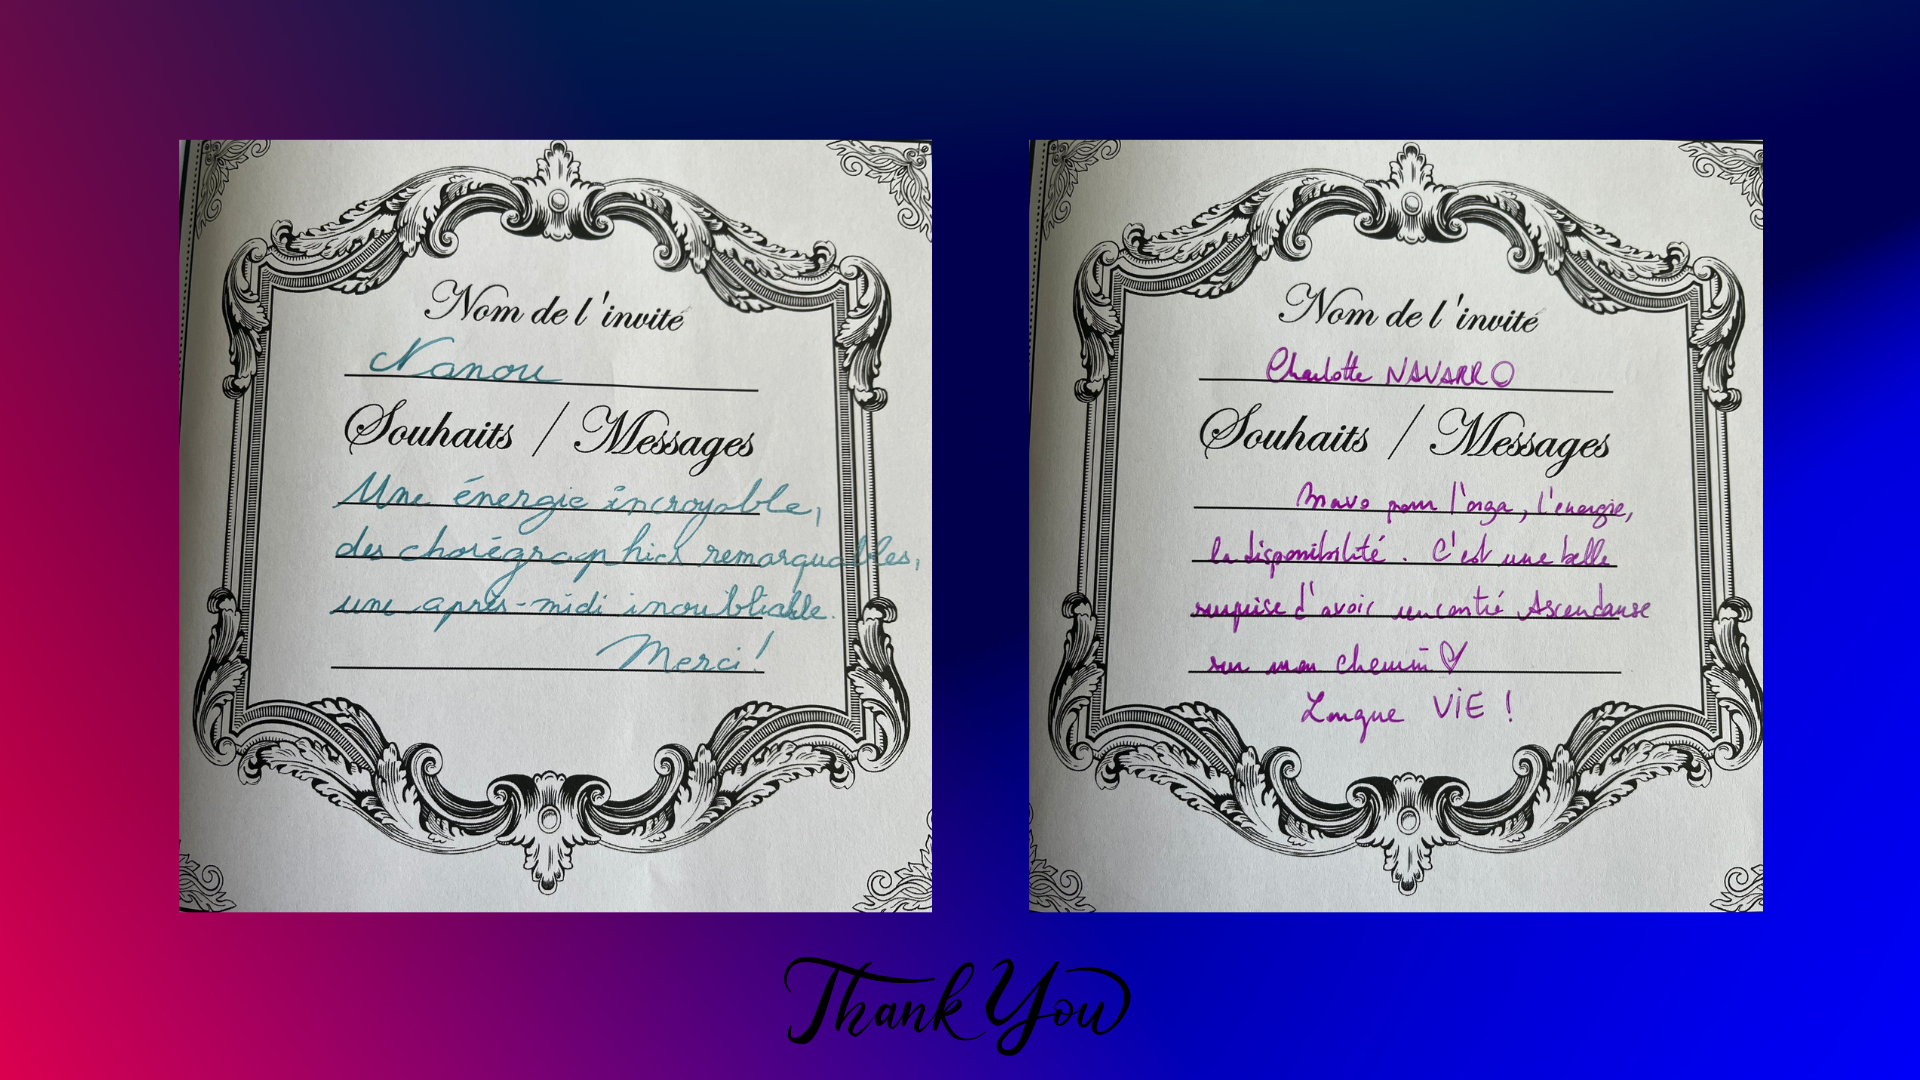 Nom de l'invité
Nanou
Souhaits / Messages
Une énergie incroyable,
des chorégraphies remarquables,
une après-midi inoubliable.
Merci !
Nom de l'invité
Charlotte NAVARRO
Souhaits / Messages
Bravo pour l'orga, l'énergie,
la disponibilité. C'est une belle
surprise d'avoir rencontré Ascendanse
sur mon chemin ♡
Longue VIE !
Thank You